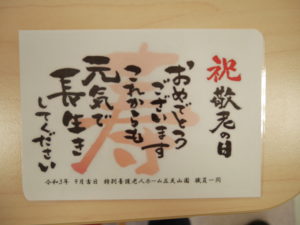 祝
敬老の日
おめでとう
ございます
これからも
元気で
長生き
してください
寿
令和3年 9月吉日 特別養護老人ホーム正吉山園 職員一同